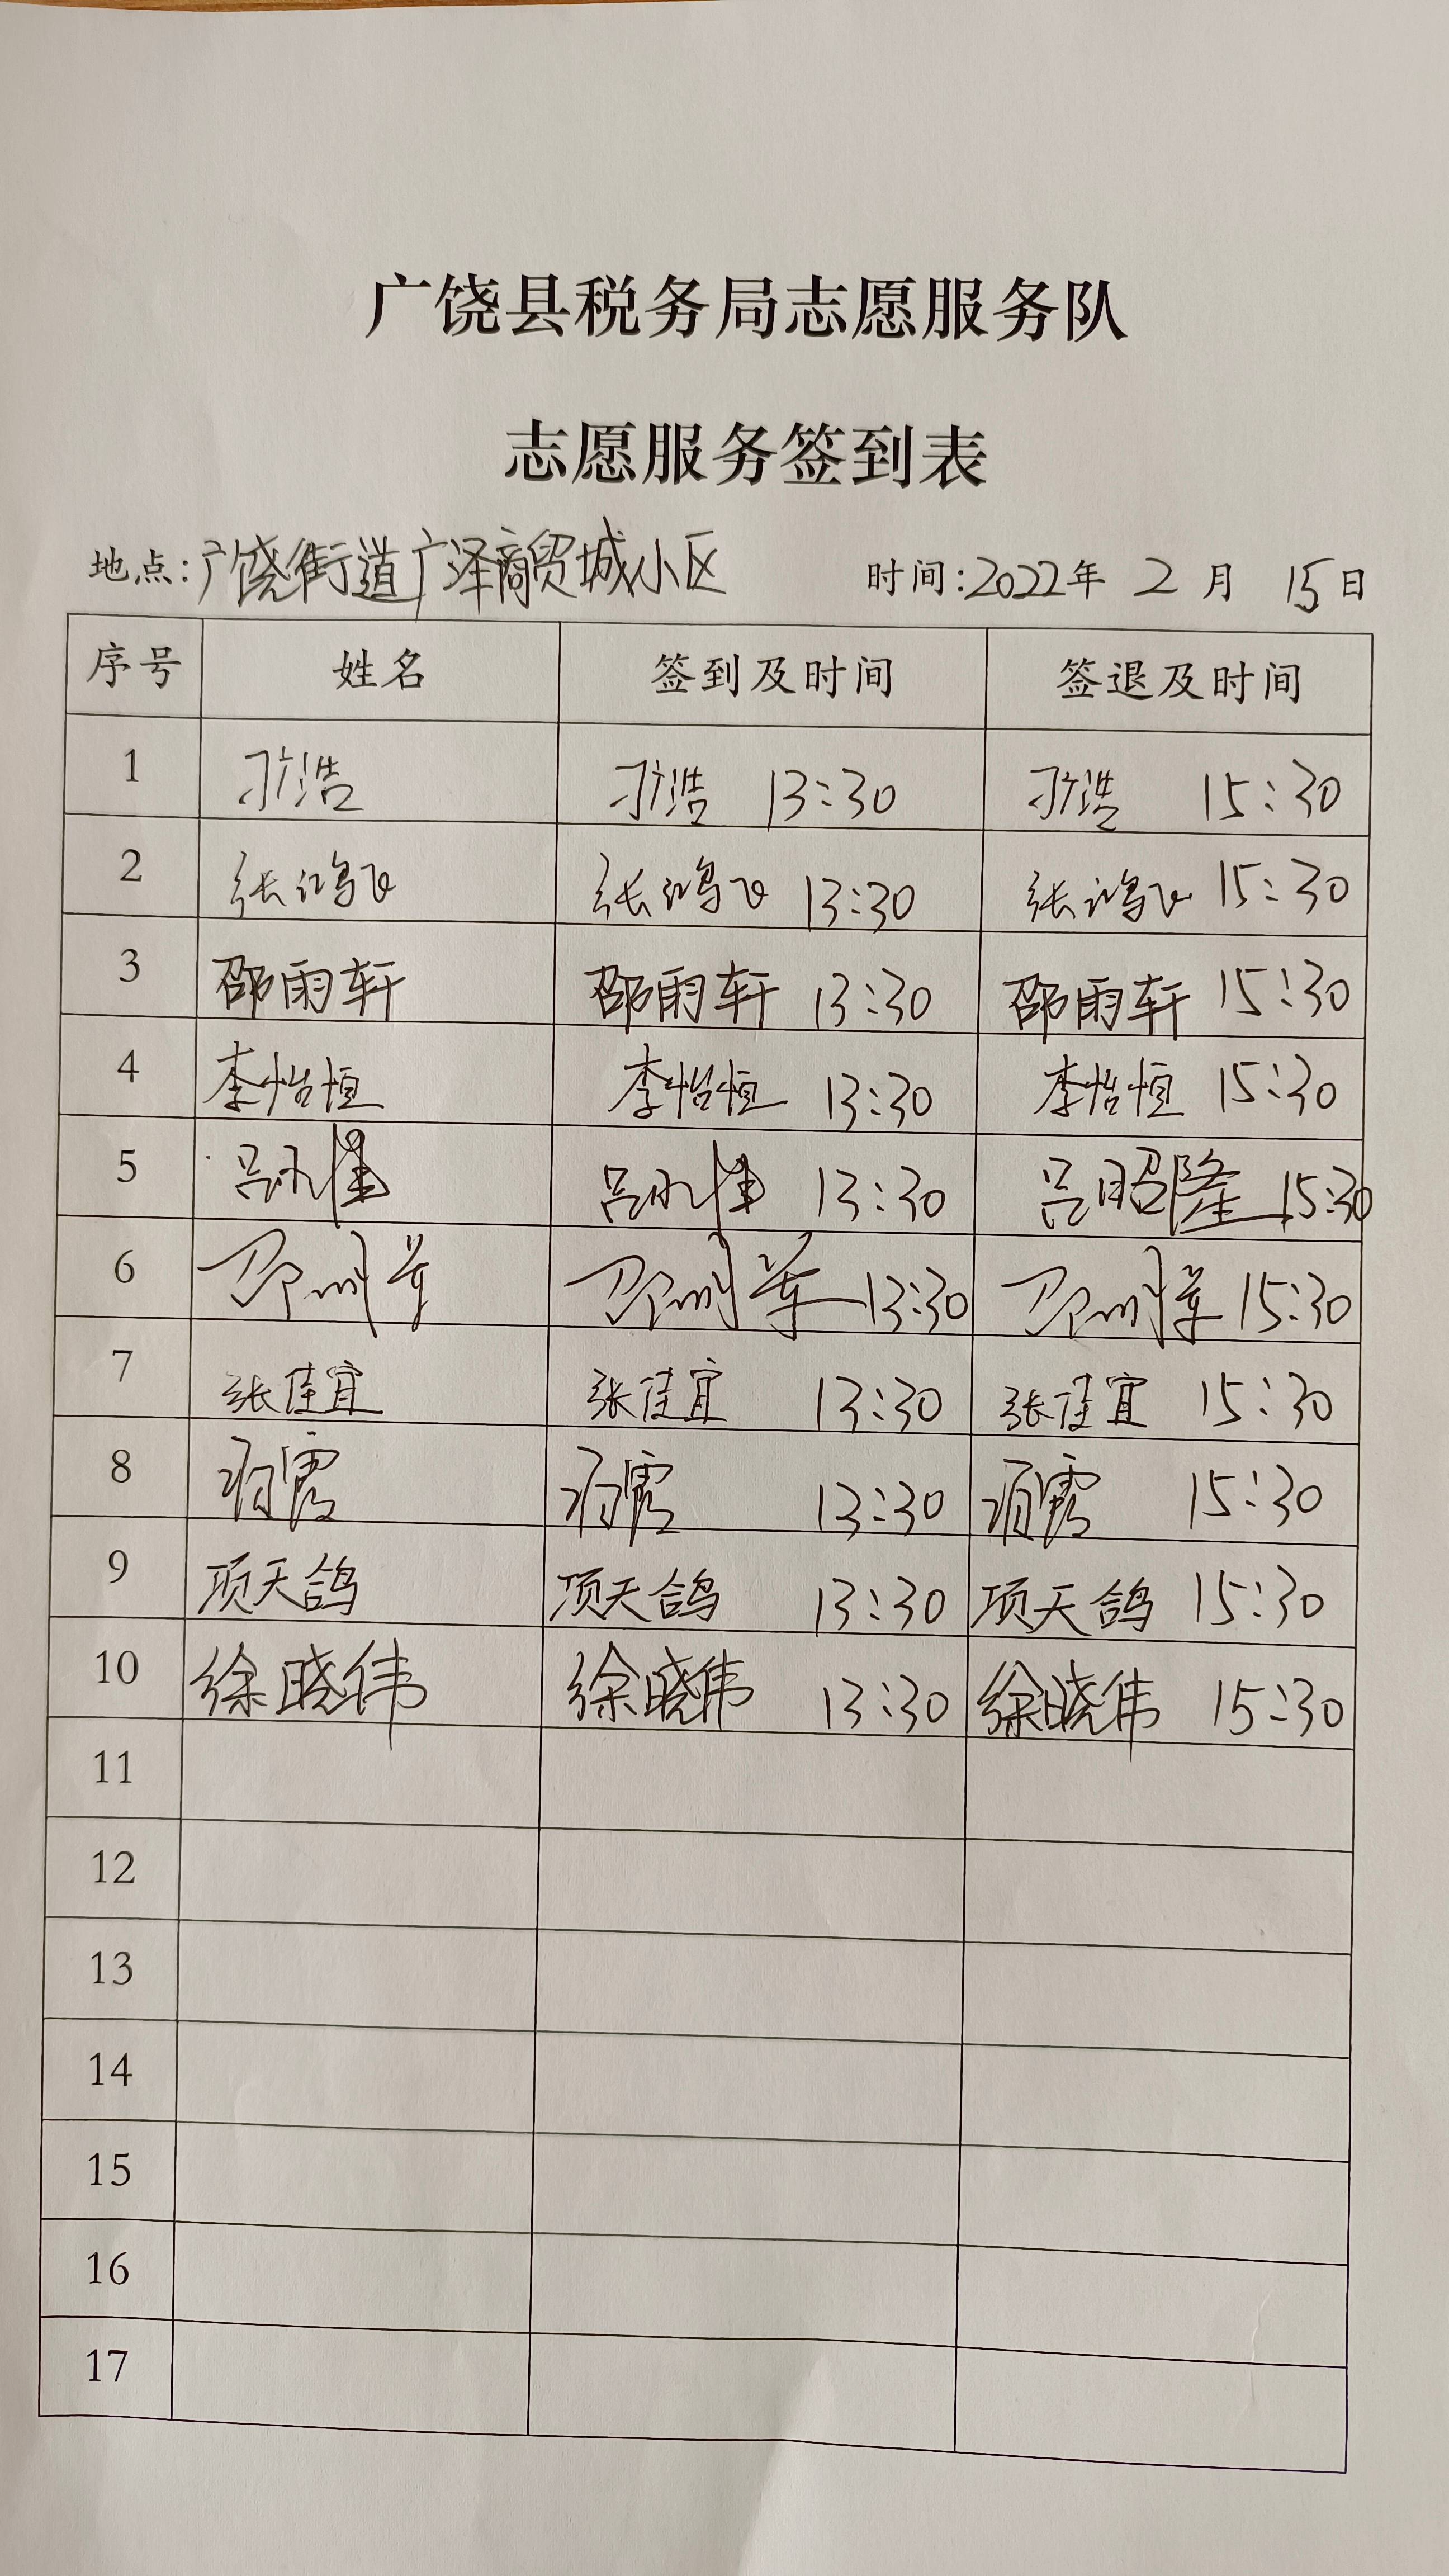 广饶县税务局志愿服务队
志愿服务签到表
地点:广饶街道广泽商贸城小区 时间:2022年 2 月 15日
序号 姓名 签到及时间 签退及时间
1 刁浩 刁浩 13:30 刁浩 15:30
2 张鸿飞 张鸿飞 13:30 张鸿飞 15:30
3 邵雨轩 邵雨轩 13:30 邵雨轩 15:30
4 李怡恒 李怡恒 13:30 李怡恒 15:30
5 吕昭隆 吕昭隆 13:30 吕昭隆 15:30
6 13:30 15:30
7 张佳宜 张佳宜 13:30 张佳宜 15:30
8 13:30 15:30
9 项天鸽 项天鸽 13:30 项天鸽 15:30
10 徐晓伟 徐晓伟 13:30 徐晓伟 15:30
11
12
13
14
15
16
17